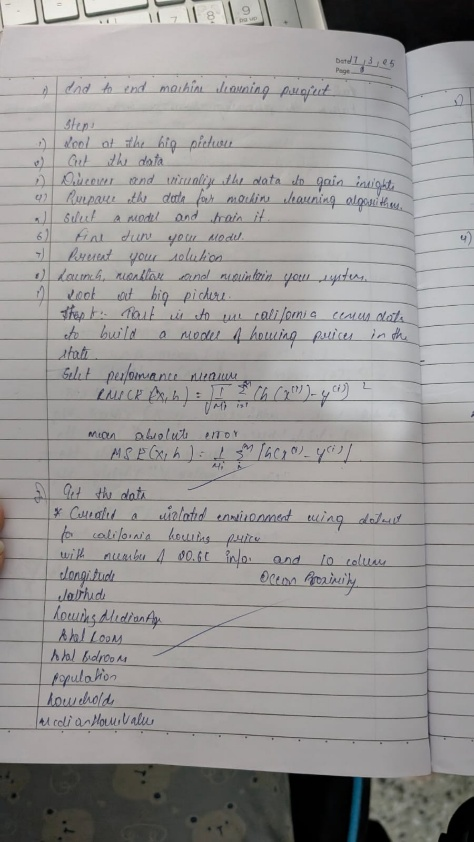 Date 17, 3, 25
Page
1) End to end machine learning project
Steps
1) Look at the big picture
2) Get the data
3) Discover and visualize the data to gain insights
4) Prepare the data for machine learning algorithm.
5) Select a model and train it.
6) Fine tune your model.
7) Present your solution
8) Launch, monitor and maintain your system.
1) Look at big picture.
Step 1:- Task is to use california census data
to build a model of housing prices in the
state.
Select performance measure
RMSE(X,h) = √1/m Σ i=1 (h(x(i)) - y(i))²
mean absolute error
MSE(X,h) = 1/m Σ i |h(x(i)) - y(i)|
2) Get the data
* Created a isolated environment using dataset
for california housing price
with number of and 10 column
longitude Ocean Proximity
latitude
housing Median Age
total Room
total Bedroom
population
households
Median House Value
3)
4)